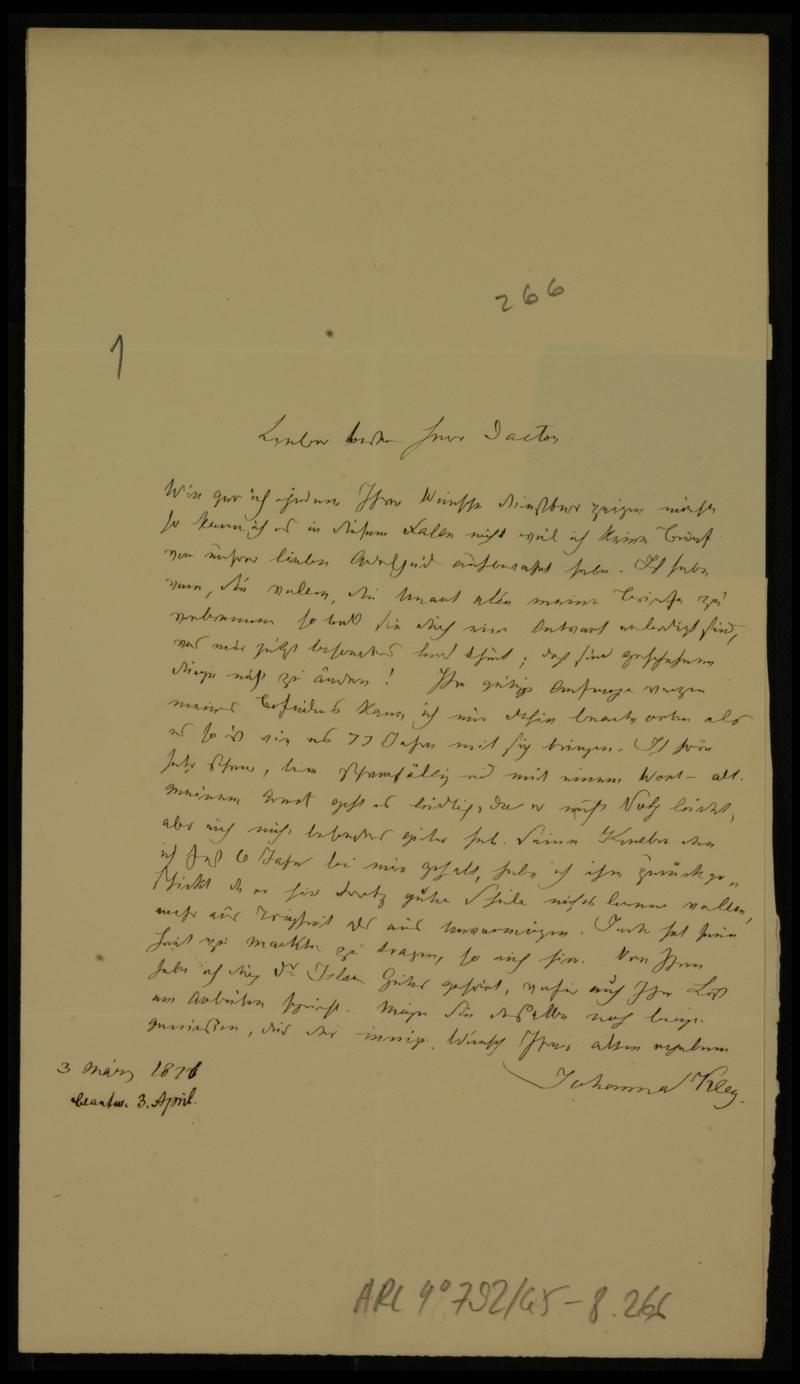 266
1
Lieber bester Herr Doctor.
Wie gern ich jedem Ihrer Wünsche dienstbar zeigen möchte
so kann ich es in diesem Falle nicht weil ich keinen Brief
von unsrer lieben Adelheid aufbewahrt habe. Ich habe
die Unart alle meine Briefe zu
verbrennen so bald sie durch eine Antwort erledigt sind,
was mir jetzt besonders leid thut; doch sind geschehene
Dinge nicht zu ändern! Ihre gütige Anfrage wegen
meines Befindens kann ich nur dahin beantworten als
es so ist wie es 77 Jahre mit sich bringen. Ich höre
sehr schwer, bin schwerfällig und mit einem Wort – alt.
Meinem Ernst geht es leidlich, da er nicht Noth leidet,
aber auch nicht besonders gutes hat. Seinen Knaben den
ich fast 6 Jahre bei mir gehabt, habe ich ihm zurück ge-
schickt da er hier trotz guter Schule nichts lernen wollte,
mehr aus Trägheit als aus Unvermögen. Jeder hat seine
Haut zu Markte zu tragen, so auch hier. Von Ihnen
habe ich durch Dr Gutes gehört, wofür auch Ihre Lust
am Arbeiten spricht. Mögen Sie dieselbe noch lange
geniessen, dies der innige Wunsch Ihrer alten ergebenen
Johanna Kleg.
3 März 1871
beantw. 3. April.
ARC 4° 792/G5-8.266